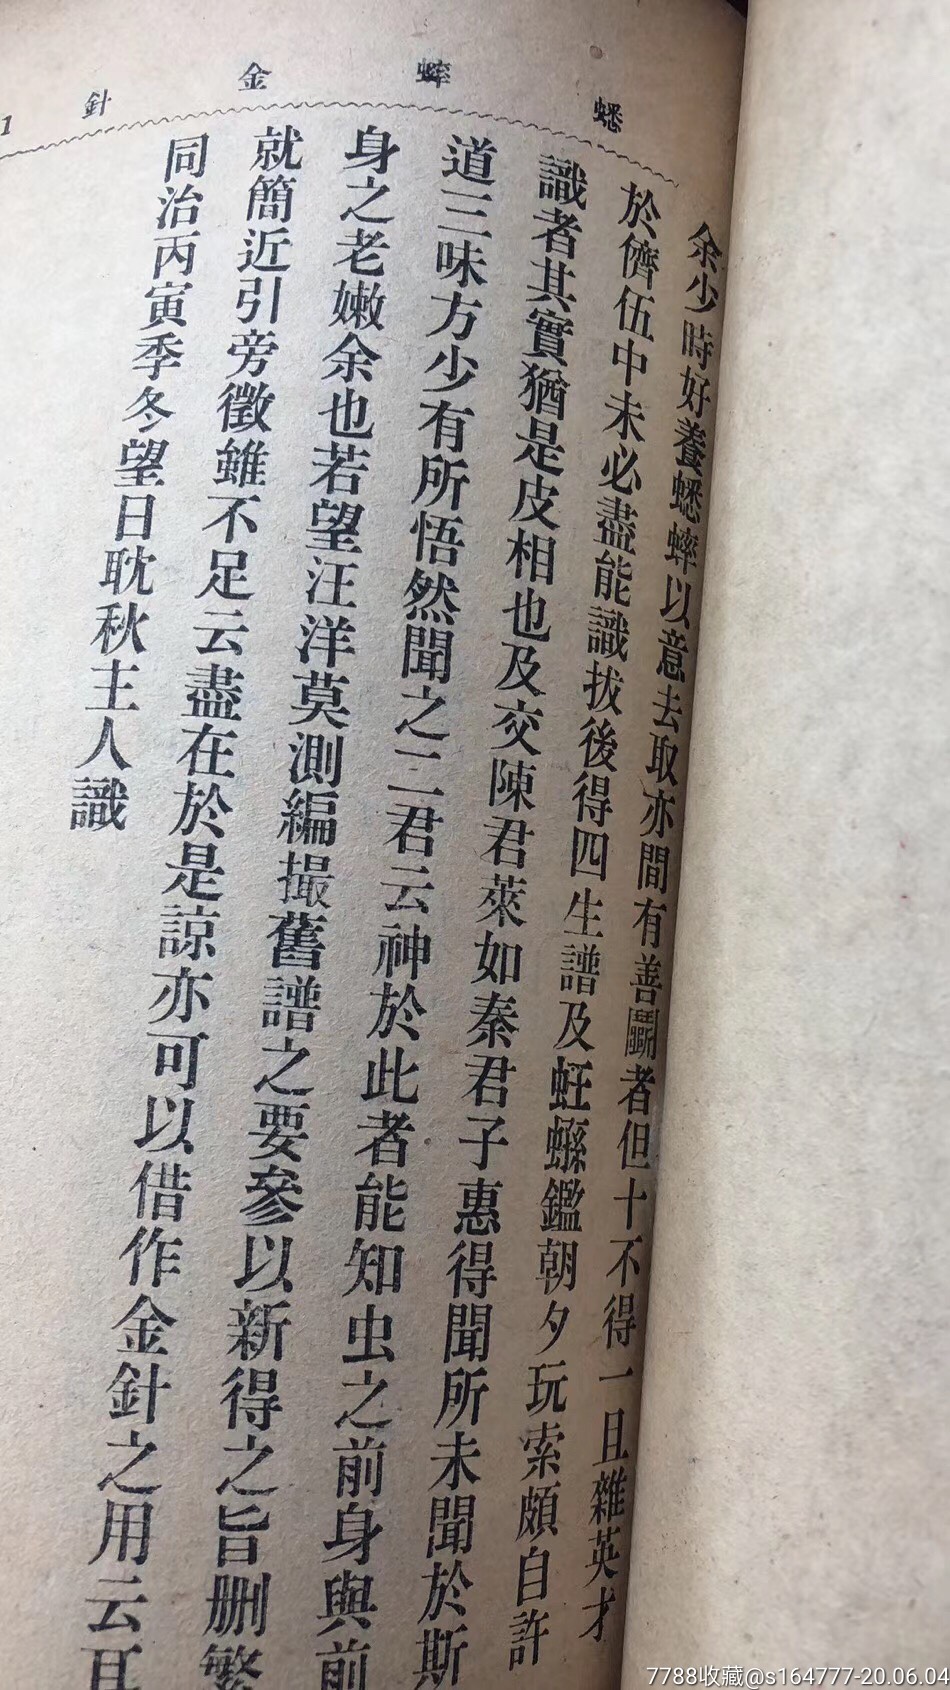 蟋蟀金針
1
余少時好養蟋蟀以意去取亦間有善鬭者但十不得一且雜英才
於儕伍中未必盡能識拔後得四生譜及蚟蟋鑑朝夕玩索頗自許
識者其實猶是皮相也及交陳君萊如秦君子惠得聞所未聞於斯
道三味方少有所悟然聞之二君云神於此者能知虫之前身與前
身之老嫩余也若望汪洋莫測編撮舊譜之要參以新得之旨删繁
就簡近引旁徵雖不足云盡在於是諒亦可以借作金針之用云耳
同治丙寅季冬望日耽秋主人識
7788收藏@s164777-20.06.04